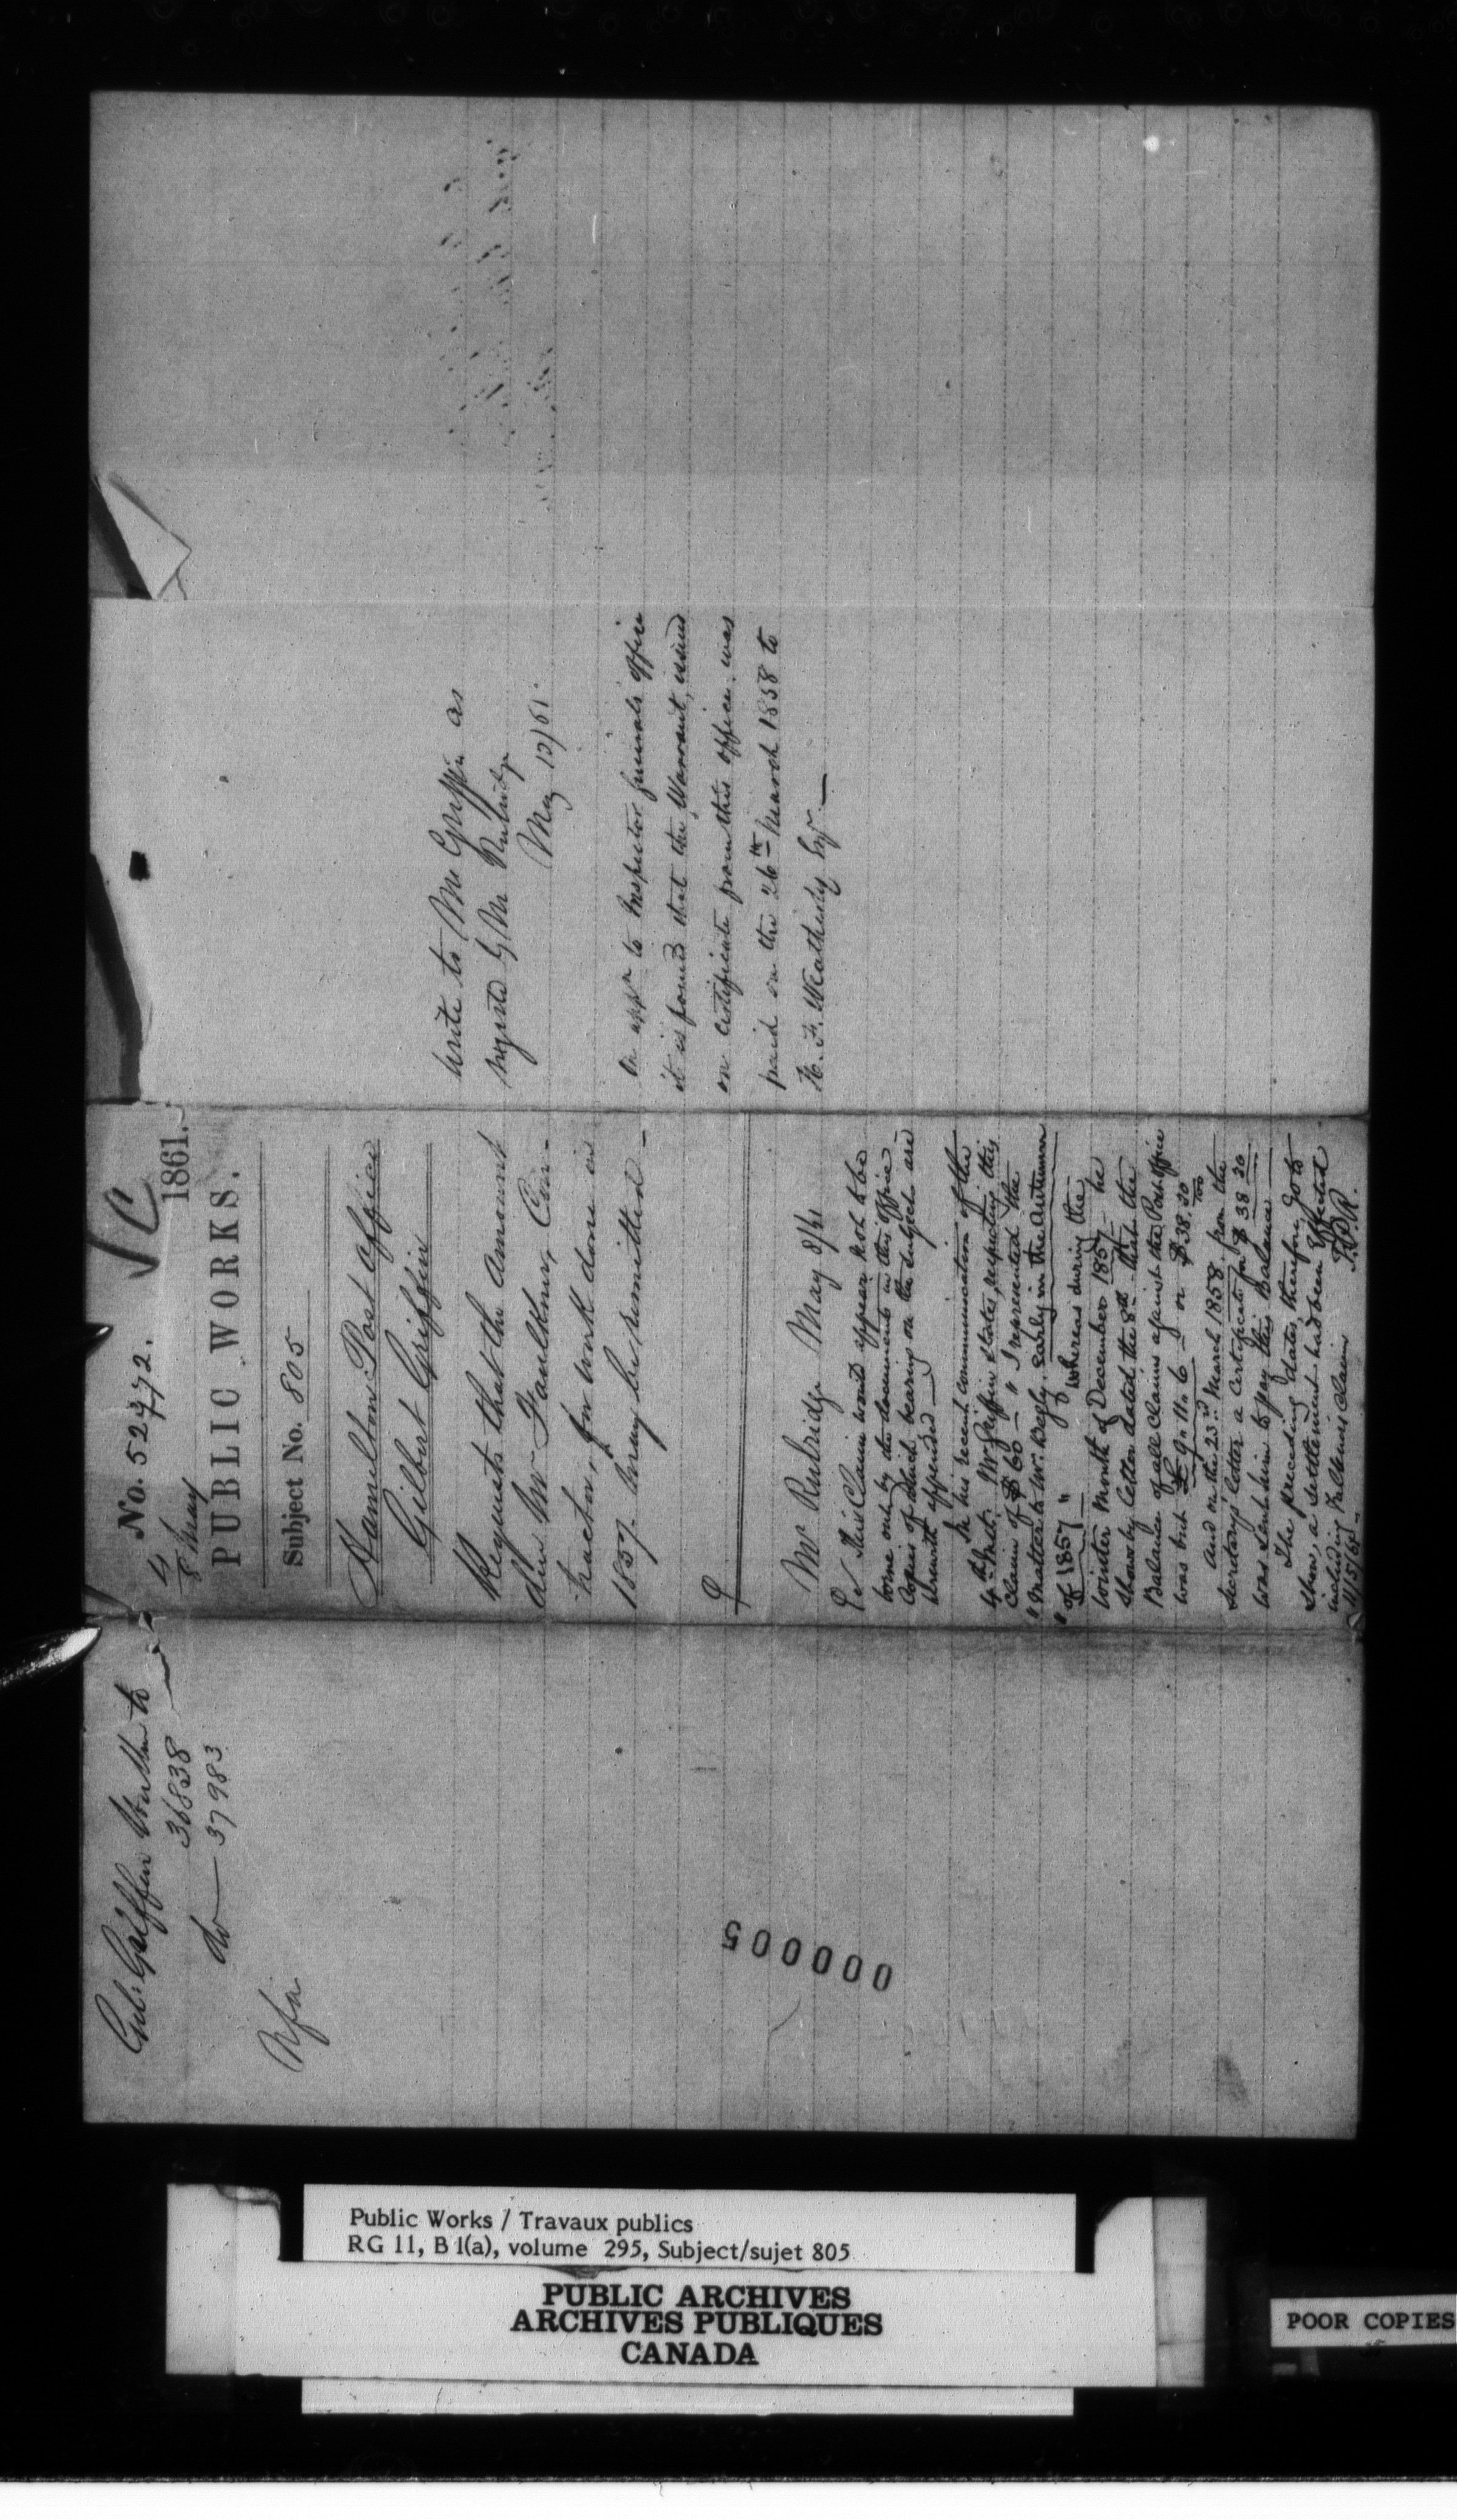 Gil. Griffin Written to
36838
do — 37983
Nfa
000005
No. 52972.
4
8 May
1861.
PUBLIC WORKS.
Subject No. 805
Hamilton Post Office
Gilbert Griffin
Requests that the amount
due Mr Faulkner, Con-
tractor, for work done in
1857. may be remitted —
Mr Rubidge May 8/61
This Claim would appear not to be
borne out by the documents in this office
Copies of which bearing on the subject are
herewith appended —
In his recent communication of the
4th Inst. Mr Griffin states, respecting this
Claim of $60 — "I represented the
"matter to Mr. Begly, early in the Autumn
"of 1857" — Whereas during the
winter Month of December 1857 — he
shows by letter dated the 8th — that the
Balance of all Claims against the Post Office
was but £9 " 11 " 6 — or $38.30/100
And on the 23rd March 1858. from the
Secretary's letter a Certificate for $38.30
was sent him to pay this Balance —
The preceding dates, therefore, go to
show, a settlement had been effected
including Faulkner's claim
11/5/61 — F.P.R.
Write to Mr Griffin as
reported by Mr Rubidge
May 13/61.
On appn to Inspector Generals Office
it is found that the Warrant, issued
on Certificate from this office, was
paid on the 26th March 1858 to
H. F. Weatherly Esqr. —
Public Works / Travaux publics
RG 11, B 1(a), volume 295, Subject/sujet 805
PUBLIC ARCHIVES
ARCHIVES PUBLIQUES
CANADA
POOR COPIES